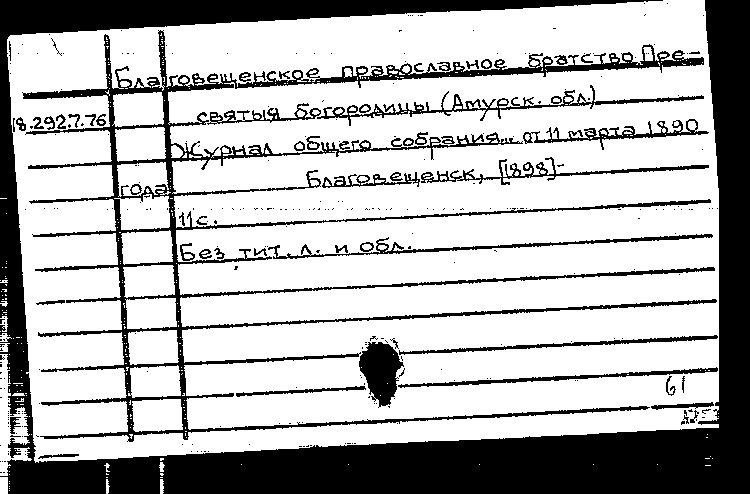 Благовещенское православное братство Пре-
18.292.7.76 святыя богородицы (Амурск. обл.)
Журнал общего собрания... от 11 марта 1890
года. Благовещенск, [1898]-
11с.
Без тит. л. и обл.
61